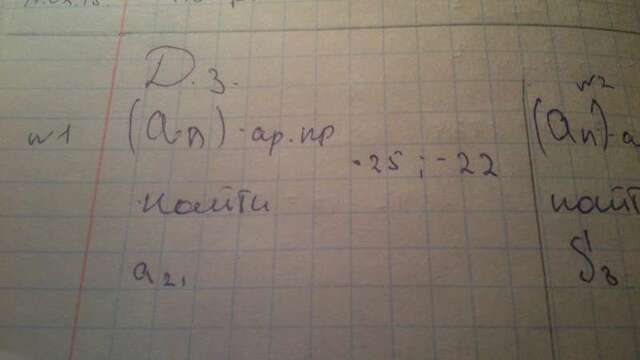 Д.з.
№1 (aₙ) - ар.пр
-25 ; -22
найти
a₂₁
№2
(aₙ) - а
найт
S₈